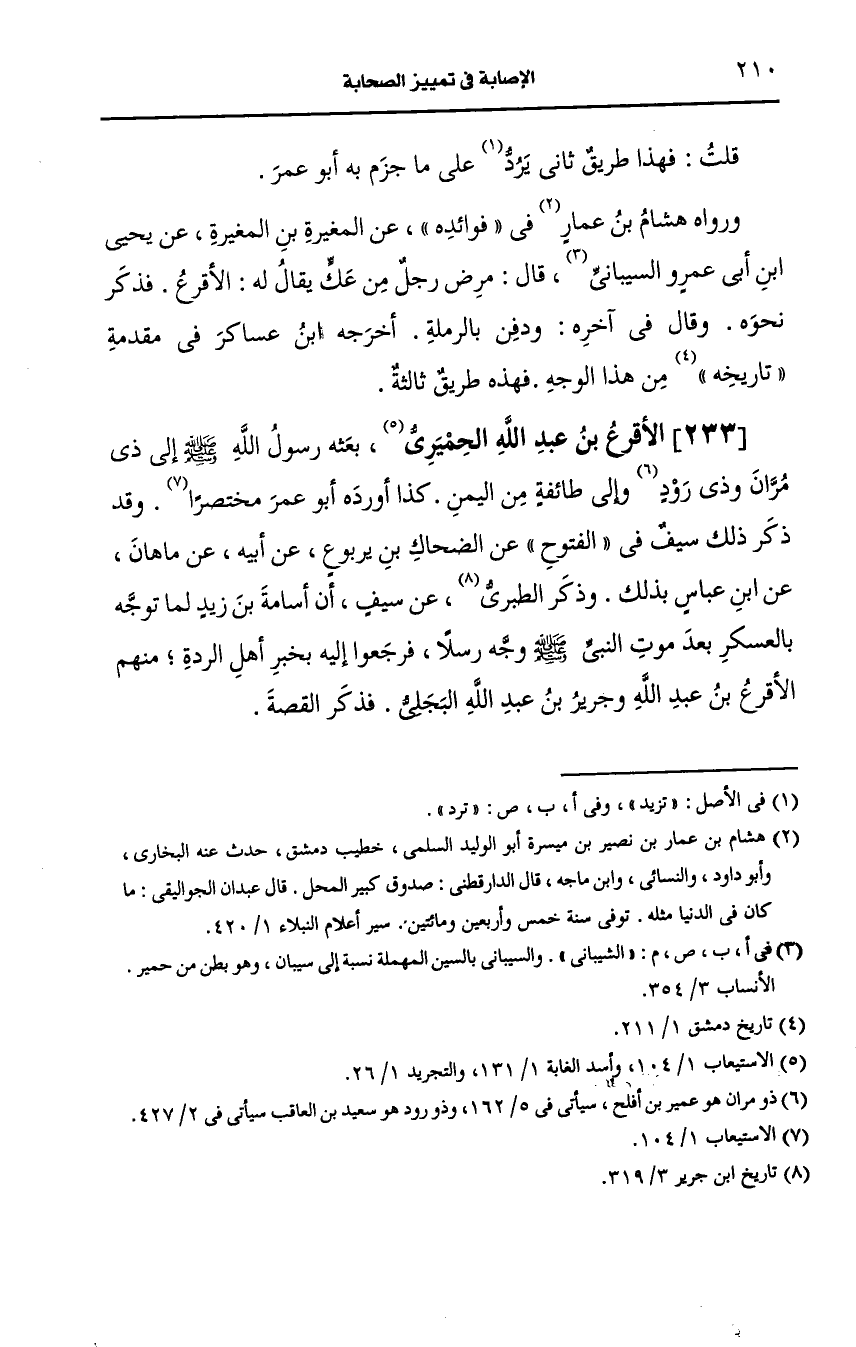 ٢١٠
الإصابة فى تمييز الصحابة
قلتُ : فهذا طريقٌ ثانى يَرُدُّ(١) على ما جزَم به أبو عمرَ .
ورواه هشامُ بنُ عمارٍ(٢) فى « فوائدِه » ، عن المغيرةِ بنِ المغيرةِ ، عن يحيى
ابنِ أبى عمرٍو السيبانىِّ(٣) ، قال : مرِض رجلٌ مِن عَكٍّ يقالُ له : الأقرعُ . فذكَر
نحوَه . وقال فى آخرِه : ودفِن بالرملةِ . أخرَجه ابنُ عساكرَ فى مقدمةِ
« تاريخِه »(٤) مِن هذا الوجهِ .فهذه طريقٌ ثالثةٌ .
[٢٣٣] الأقرعُ بنُ عبدِ اللَّهِ الحِمْيَرِىُّ(٥) ، بعَثه رسولُ اللَّهِ ﷺ إلى ذى
مُرَّانَ وذى رَوْدٍ(٦) وإلى طائفةٍ مِن اليمنِ . كذا أوردَه أبو عمرَ مختصرًا(٧) . وقد
ذكَر ذلك سيفٌ فى « الفتوحِ » عن الضحاكِ بنِ يربوعٍ ، عن أبيه ، عن ماهانَ ،
عن ابنِ عباسٍ بذلك . وذكَر الطبرىُّ(٨) ، عن سيفٍ ، أن أسامةَ بنَ زيدٍ لما توجَّه
بالعسكرِ بعدَ موتِ النبىِّ ﷺ وجَّه رسلًا ، فرجَعوا إليه بخبرِ أهلِ الردةِ ؛ منهم
الأقرعُ بنُ عبدِ اللَّهِ وجريرُ بنُ عبدِ اللَّهِ البَجَلِىُّ . فذكَر القصةَ .
(١) فى الأصل : « تزيد » ، وفى أ ، ب ، ص : « ترد » .
(٢) هشام بن عمار بن نصير بن ميسرة أبو الوليد السلمى ، خطيب دمشق ، حدث عنه البخارى ،
وأبو داود ، والنسائى ، وابن ماجه ، قال الدارقطنى : صدوق كبير المحل . قال عبدان الجواليقى : ما
كان فى الدنيا مثله . توفى سنة خمس وأربعين ومائتين . سير أعلام النبلاء ١/ ٤٢٠.
(٣) فى أ ، ب ، ص ، م : « الشيبانى » . والسيبانى بالسين المهملة نسبة إلى سيبان ، وهو بطن من حمير .
الأنساب ٣/ ٣٥٤.
(٤) تاريخ دمشق ١/ ٢١١.
(٥) الاستيعاب ١/ ١٠٤، وأسد الغابة ١/ ١٣١، والتجريد ١/ ٢٦.
(٦) ذو مران هو عمير بن أفلح ، سيأتى فى ٥/ ١٦٢، وذو رود هو سعيد بن العاقب سيأتى فى ٢/ ٤٢٧.
(٧) الاستيعاب ١/ ١٠٤.
(٨) تاريخ ابن جرير ٣/ ٣١٩.